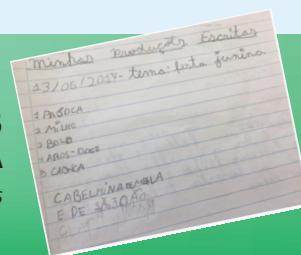 Minhas Produções Escritas
13/06/2014 - tema: festa junina
1 PAÇOCA
2 MILHO
3 BOLO
4 AROS-DOCE
5 CAJICA
CABELINA
E DE SÃO JOÃO
A